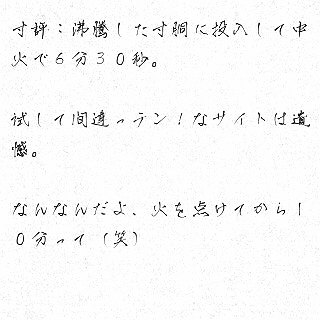 寸評：沸騰した寸胴に投入して中
火で６分３０秒。
試して間違っテン！なサイトは遺
憾。
なんなんだよ、火を点けてから１
０分って（笑）